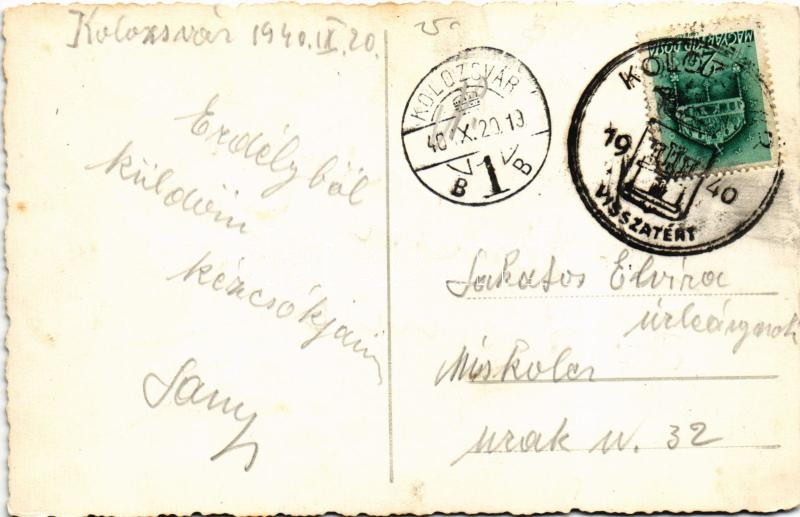 Kolozsvár 1940.IX.20.
Erdélyből
küldöm
kézcsókjaim
Sany
KOLOZSVÁR
40 IX.20.19
B 1 B
MAGYAR KIR. POSTA
KOLOZSVÁR
19 40
VISSZATÉRT
Sakatos Elvira
úrleánynak
Miskolc
urak u. 32